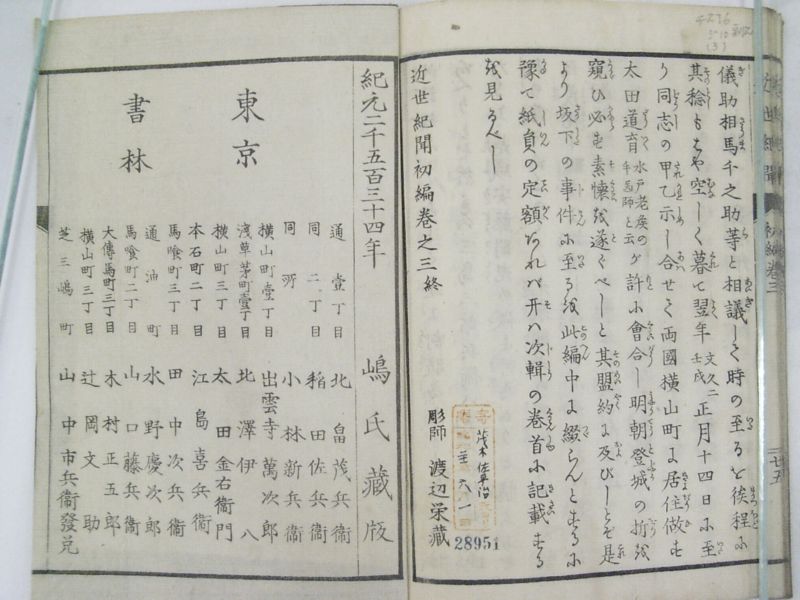 儀助相馬千之助等と相議して時の至るを俟程に
其稔もはや空しく暮て翌年文久二壬戌正月十四日に至
り同志の甲乙示し合せて両國横山町に居住做す
太田道育水戸老矦の手醫師と云が許に會合し明朝登城の折を
窺ひ必ず素懐を遂ぐべしと其盟約に及びしとぞ是
より坂下の事件に至るを此編中に綴らんとするに
豫て紙員の定額あれバ开ハ次輯の巻首に記載する
を見るべし
近世紀聞初編巻之三終
彫師 渡辺栄藏
28951
近世紀聞
初編巻三
紀元二千五百三十四年
嶋氏藏版
東京
書林
通壹丁目 北畠茂兵衞
同二丁目 稲田佐兵衞
同所 小林新兵衞
横山町壹丁目 出雲寺萬次郎
浅草茅町壹丁目 北澤伊八
横山町三丁目 太田金右衞門
本石町二丁目 江島喜兵衞
馬喰町三丁目 田中次兵衞
通油町 水野慶次郎
馬喰町二丁目 山口藤兵衞
大傳馬町三丁目 木村正五郎
横山町三丁目 辻岡文助
芝三嶋町 山中市兵衞發兌